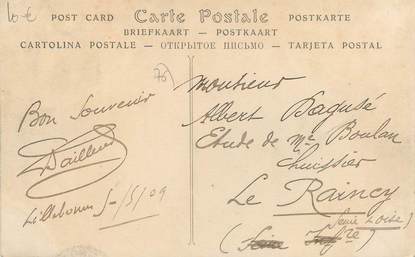 10 €
POST CARD Carte Postale POSTKARTE
BRIEFKAART — POSTKAART
CARTOLINA POSTALE — ОТКРЫТОЕ ПИСЬМО — TARJETA POSTAL
76
Bon Souvenir
Lillebonne 5-/5/09
Monsieur
Albert Dagusé
Etude de Me Boulan
huissier
Le Raincy
Seine & Oise)
(Seine Infre)